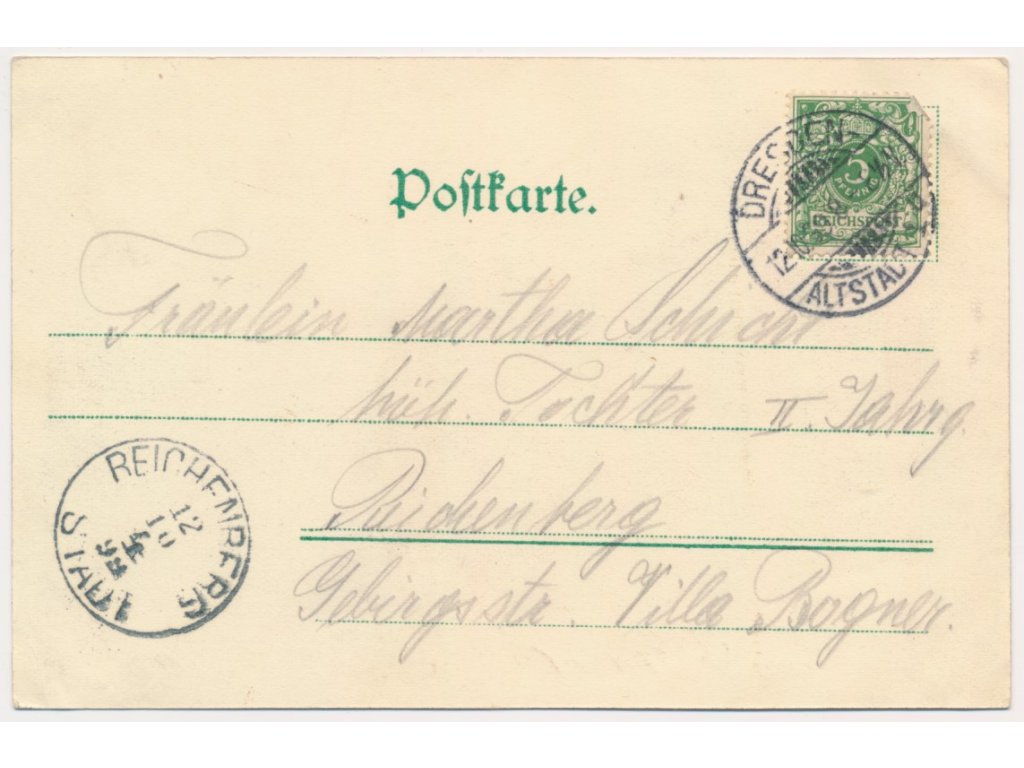 Postkarte.
5
PFENNIG
REICHSPOST
DRESDEN-
ALTSTADT
12.10
Fräulein Martha
höh. Tochter II. Jahrg.
Reichenberg
Gebirgsstr. Villa Bogner.
REICHENBERG
12
10
98
STADT